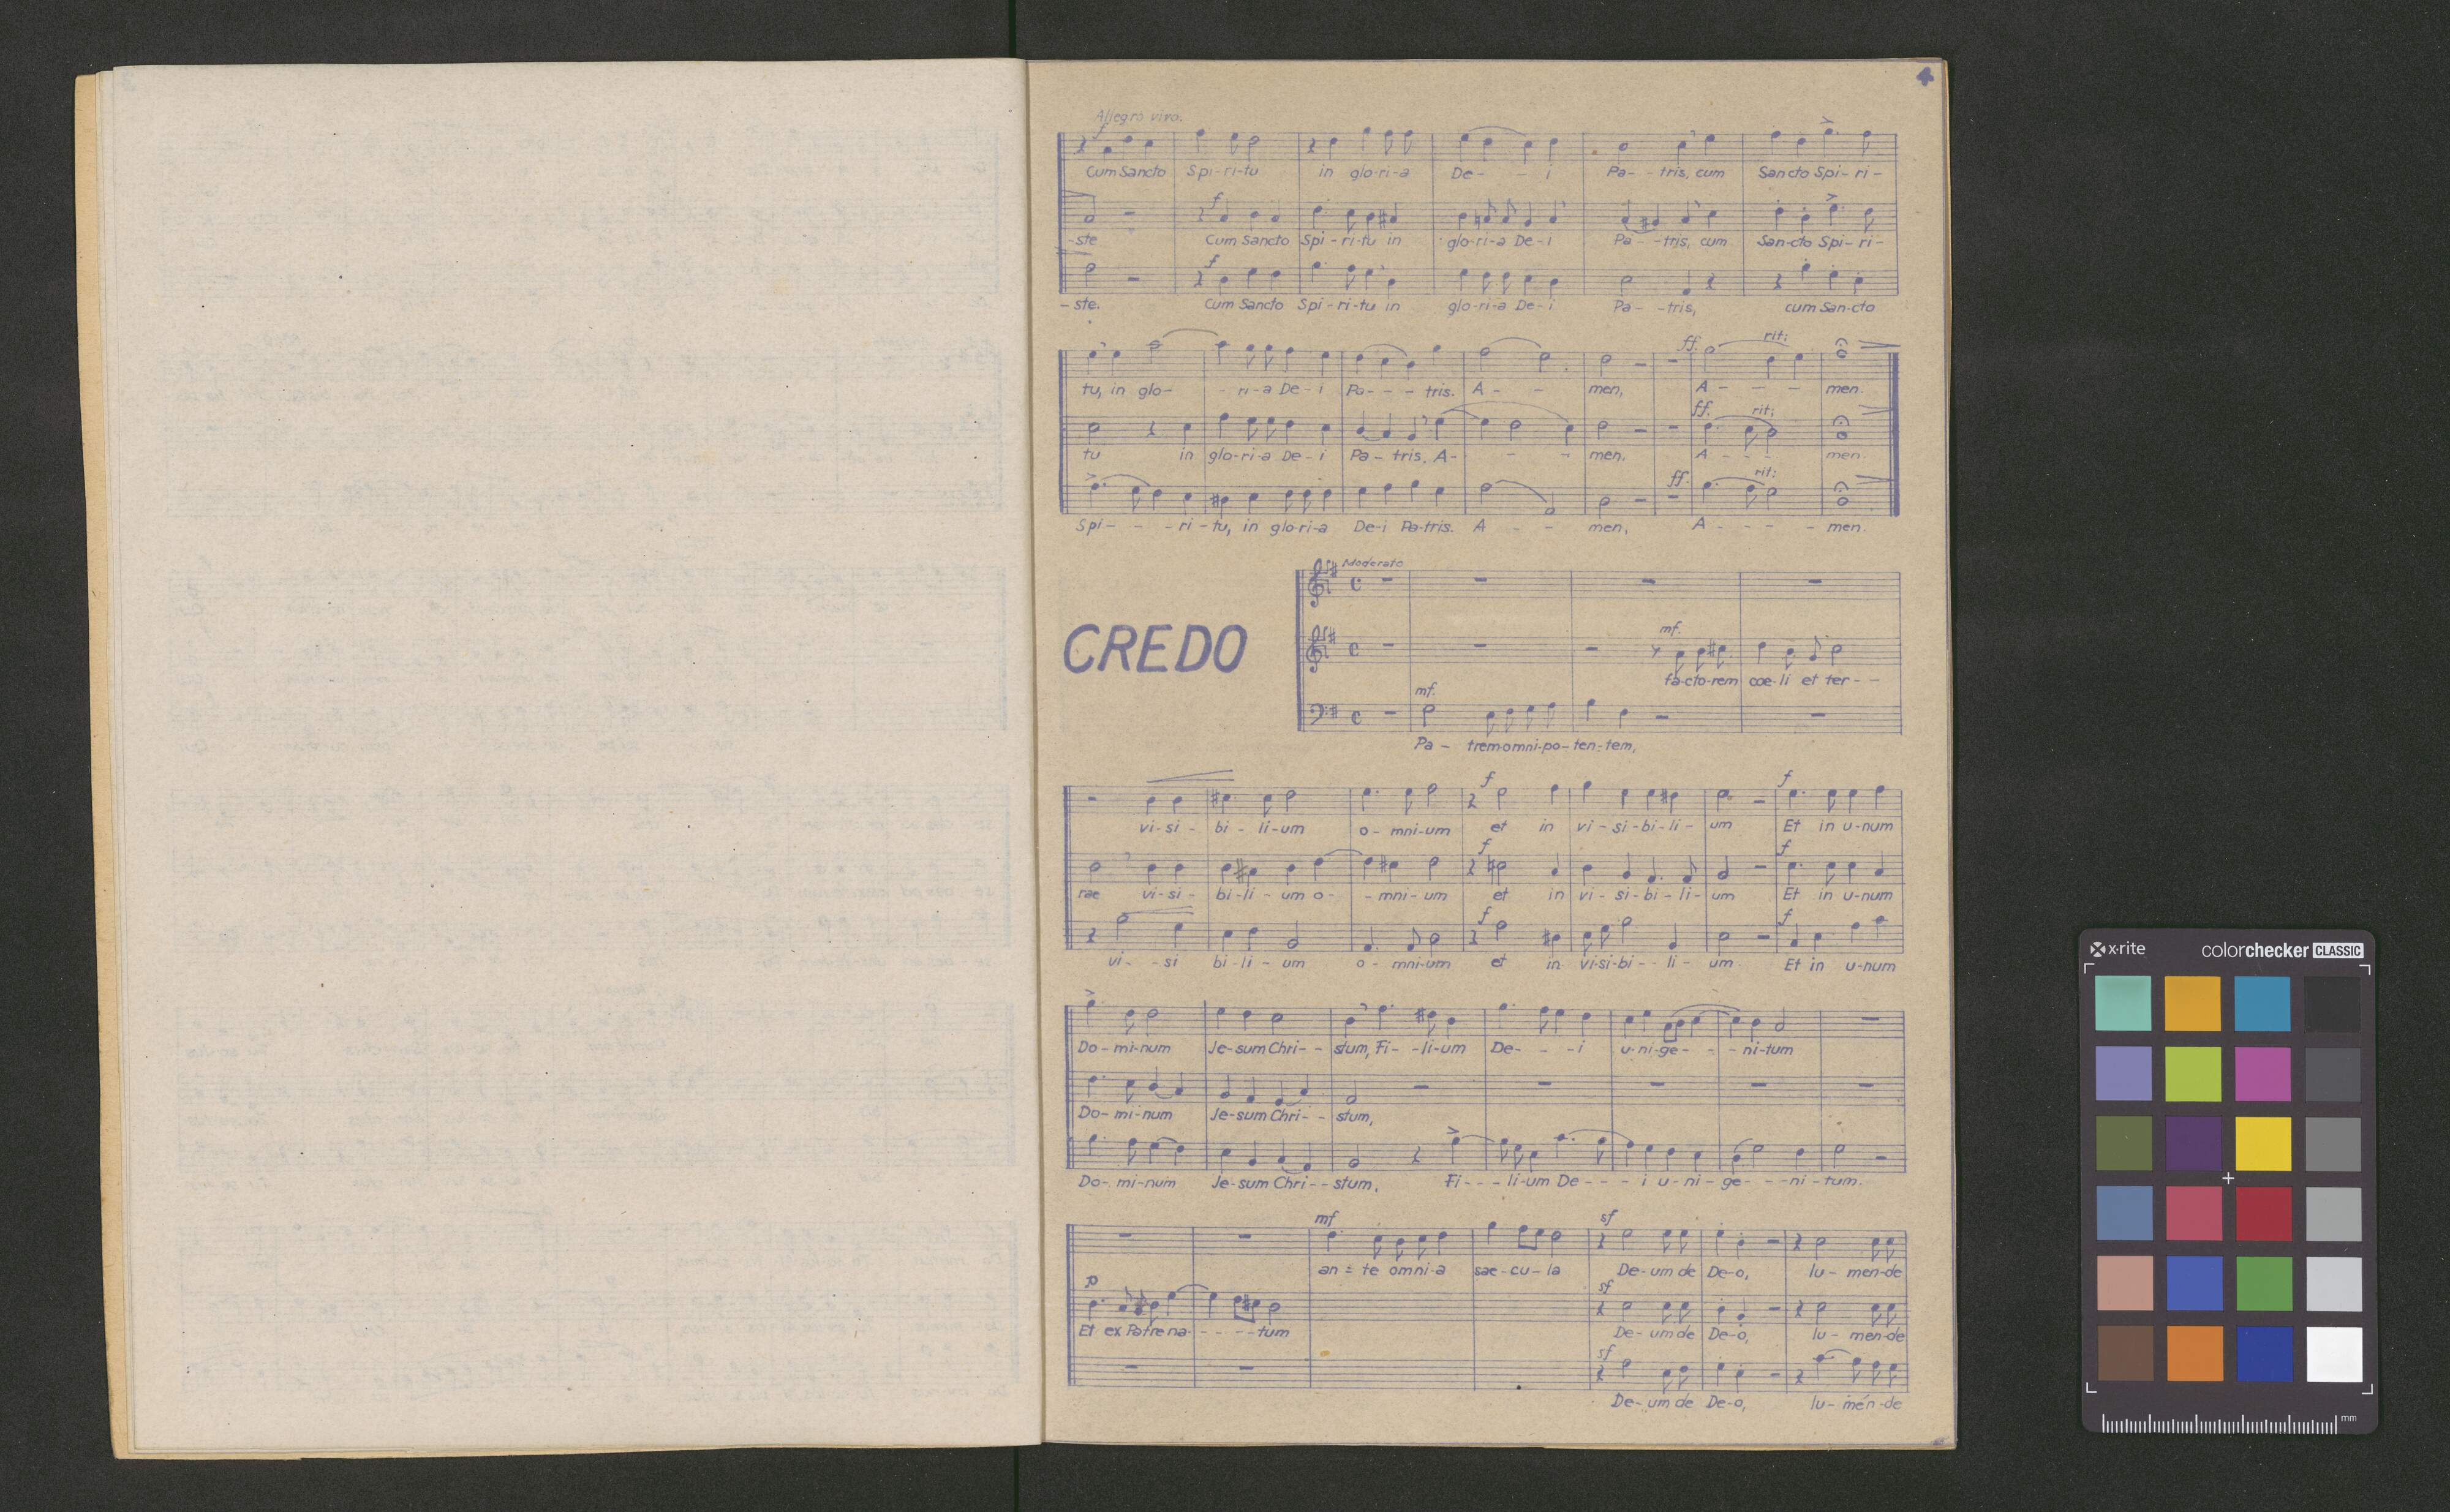 4
Allegro vivo.
f
Cum Sancto Spi-ri-tu in glo-ri-a De- - i Pa- - tris, cum Sancto Spi-ri-
f
-ste Cum Sancto Spi-ri-tu in glo-ri-a De-i Pa- -tris, cum San-cto Spi-ri-
f
-ste. Cum Sancto Spi-ri-tu in glo-ri-a De-i Pa- -tris, cum San-cto
ff. rit:
tu, in glo- - ri-a De-i Pa- - - tris. A- - men, A- - - men.
ff. rit:
tu in glo-ri-a De-i Pa-tris. A- - - men. A- - - men.
ff. rit:
Spi- - -ri-tu, in glo-ri-a De-i Pa-tris. A - - men, A- - - -men.
Moderato
CREDO
c
mf.
c
fa-cto-rem coe-li et ter- -
mf.
c
Pa- trem omni-po-ten-tem,
f f
vi-si- bi-li-um o-mnium et in vi-si-bi-li-um Et in u-num
f f
rae vi-si- bi-li-um o- -mni-um et in vi-si-bi-li-um Et in u-num
f f
vi- -si bi-li-um o-mni-um et in vi-si-bi- -li-um Et in u-num
Do-mi-num Je-sum Chri- -stum, Fi- -li-um De- - -i u-ni-ge- - -ni-tum
Do-mi-num Je-sum Chri- -stum,
Do-mi-num Je-sum Chri- -stum, Fi- - -li-um De- - -i u-ni-ge- - -ni-tum.
mf sf
an-te omni-a sae-cu-la De-um de De-o, lu-men-de
p sf
Et ex Patre na- - - -tum De-um de De-o, lu-men-de
sf
De-um de De-o, lu-men-de
x·rite colorchecker CLASSIC
mm